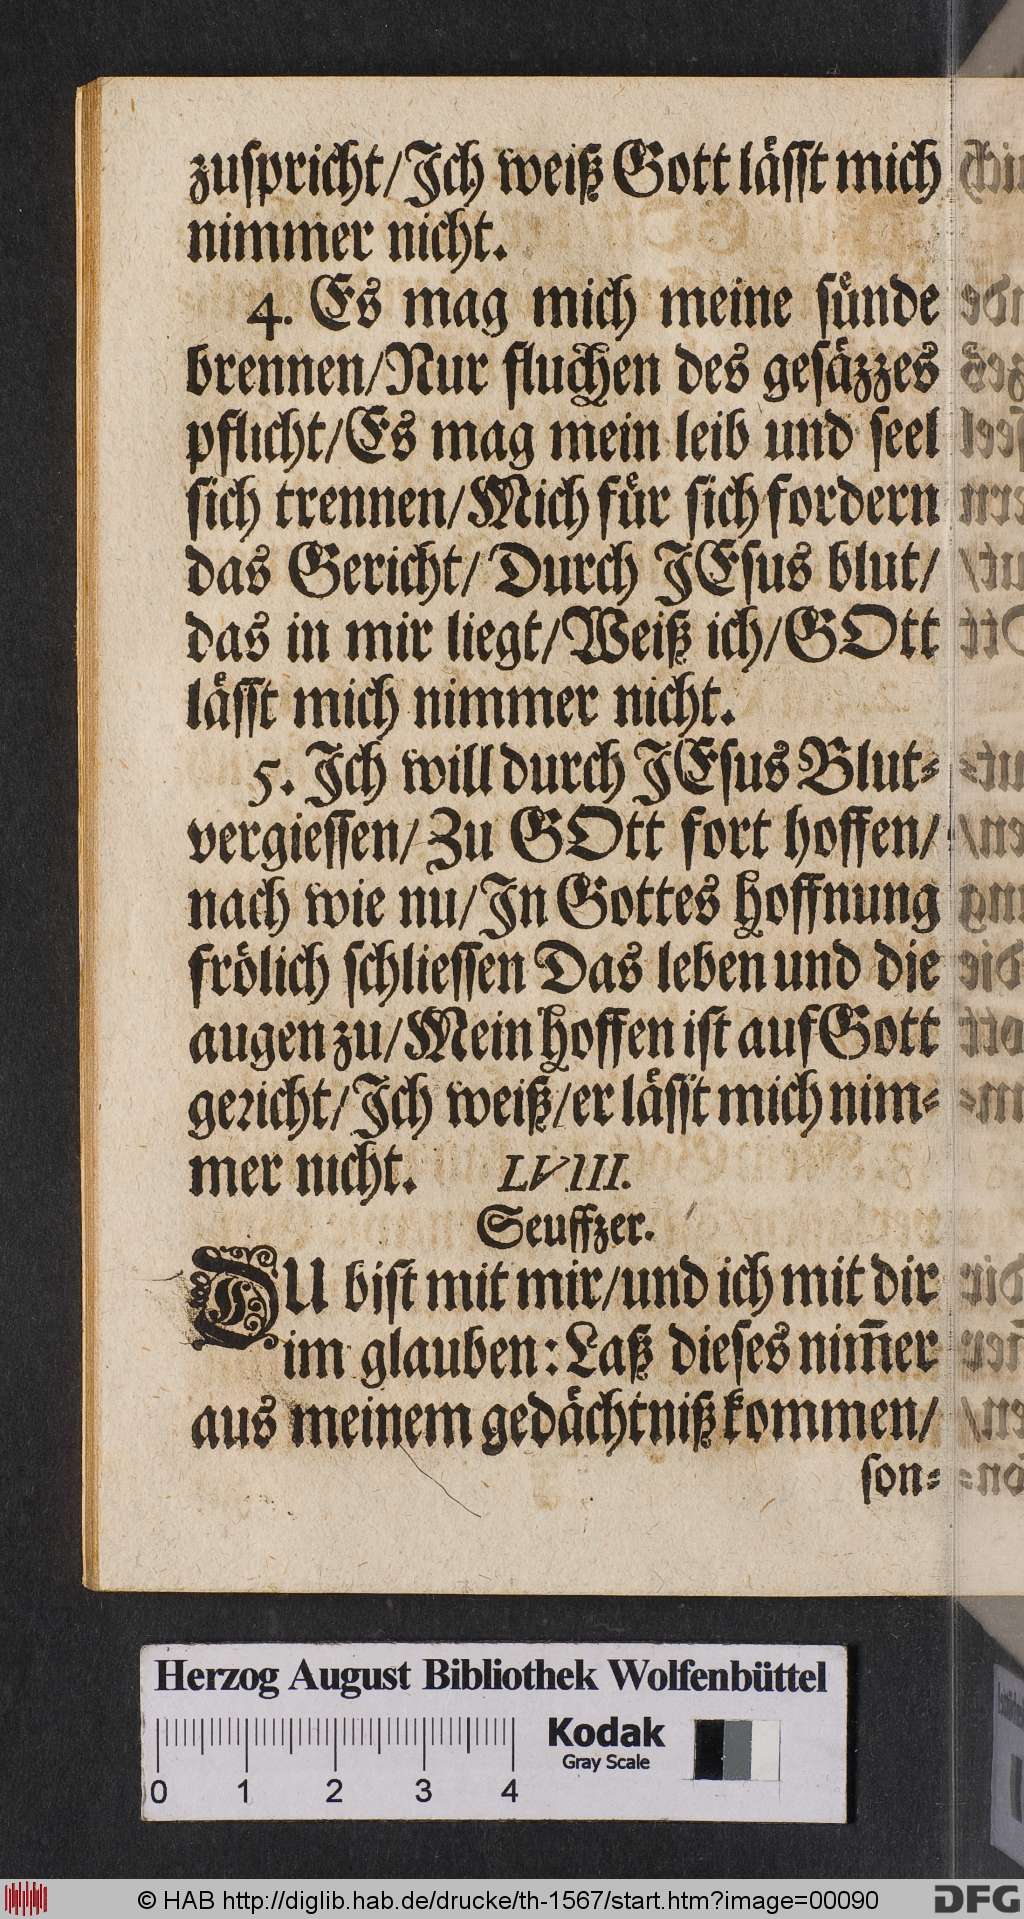 zuspricht/Ich weiß Gott lässt mich
nimmer nicht.
4. Es mag mich meine sünde
brennen/Nur fluchen des gesäzzes
pflicht/Es mag mein leib und seel
sich trennen/Mich für sich fordern
das Gericht/ Durch JEsus blut/
das in mir liegt/Weiß ich/GOtt
lässt mich nimmer nicht.
5. Ich will durch JEsus Blut-
vergiessen/Zu GOtt fort hoffen/
nach wie nu/In Gottes hoffnung
frölich schliessen Das leben und die
augen zu/Mein hoffen ist auf Gott
gericht/Ich weiß/er lässt mich nim-
mer nicht. LVIII.
Seuffzer.
DU bist mit mir/und ich mit dir
im glauben: Laß dieses nim̄er
aus meinem gedächtniß kommen/
son-
Herzog August Bibliothek Wolfenbüttel
Kodak
Gray Scale
0 1 2 3 4
© HAB http://diglib.hab.de/drucke/th-1567/start.htm?image=00090
DFG